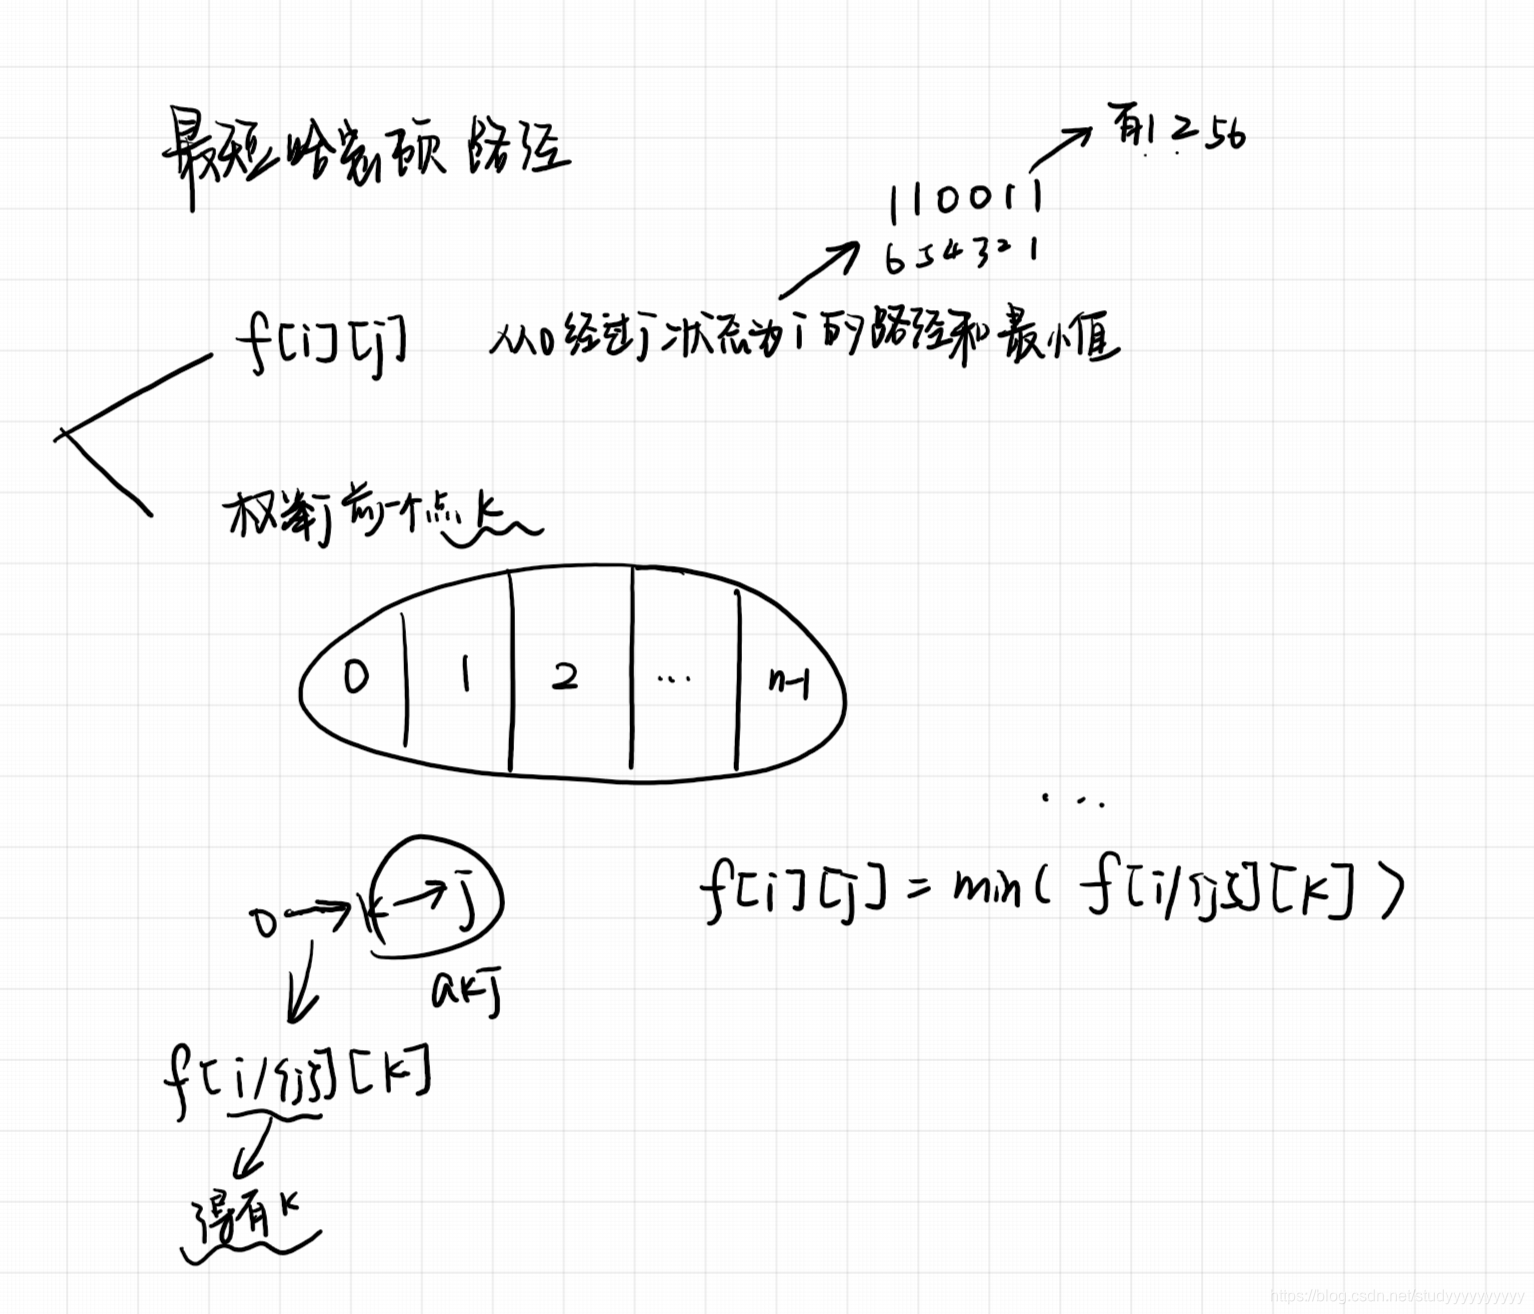 最短哈密顿路径
有1 2 5 6
110011
654321
f[i][j] 从0经过j状态为i的路径和最小值
权举j前一个点k
0 1 2 ... n-1
...
0 → k → j
f[i][j] = min( f[i/{j}][k] )
akj
f[i/{j}][k]
得有k
https://blog.csdn.net/studyyyyyyyyyy